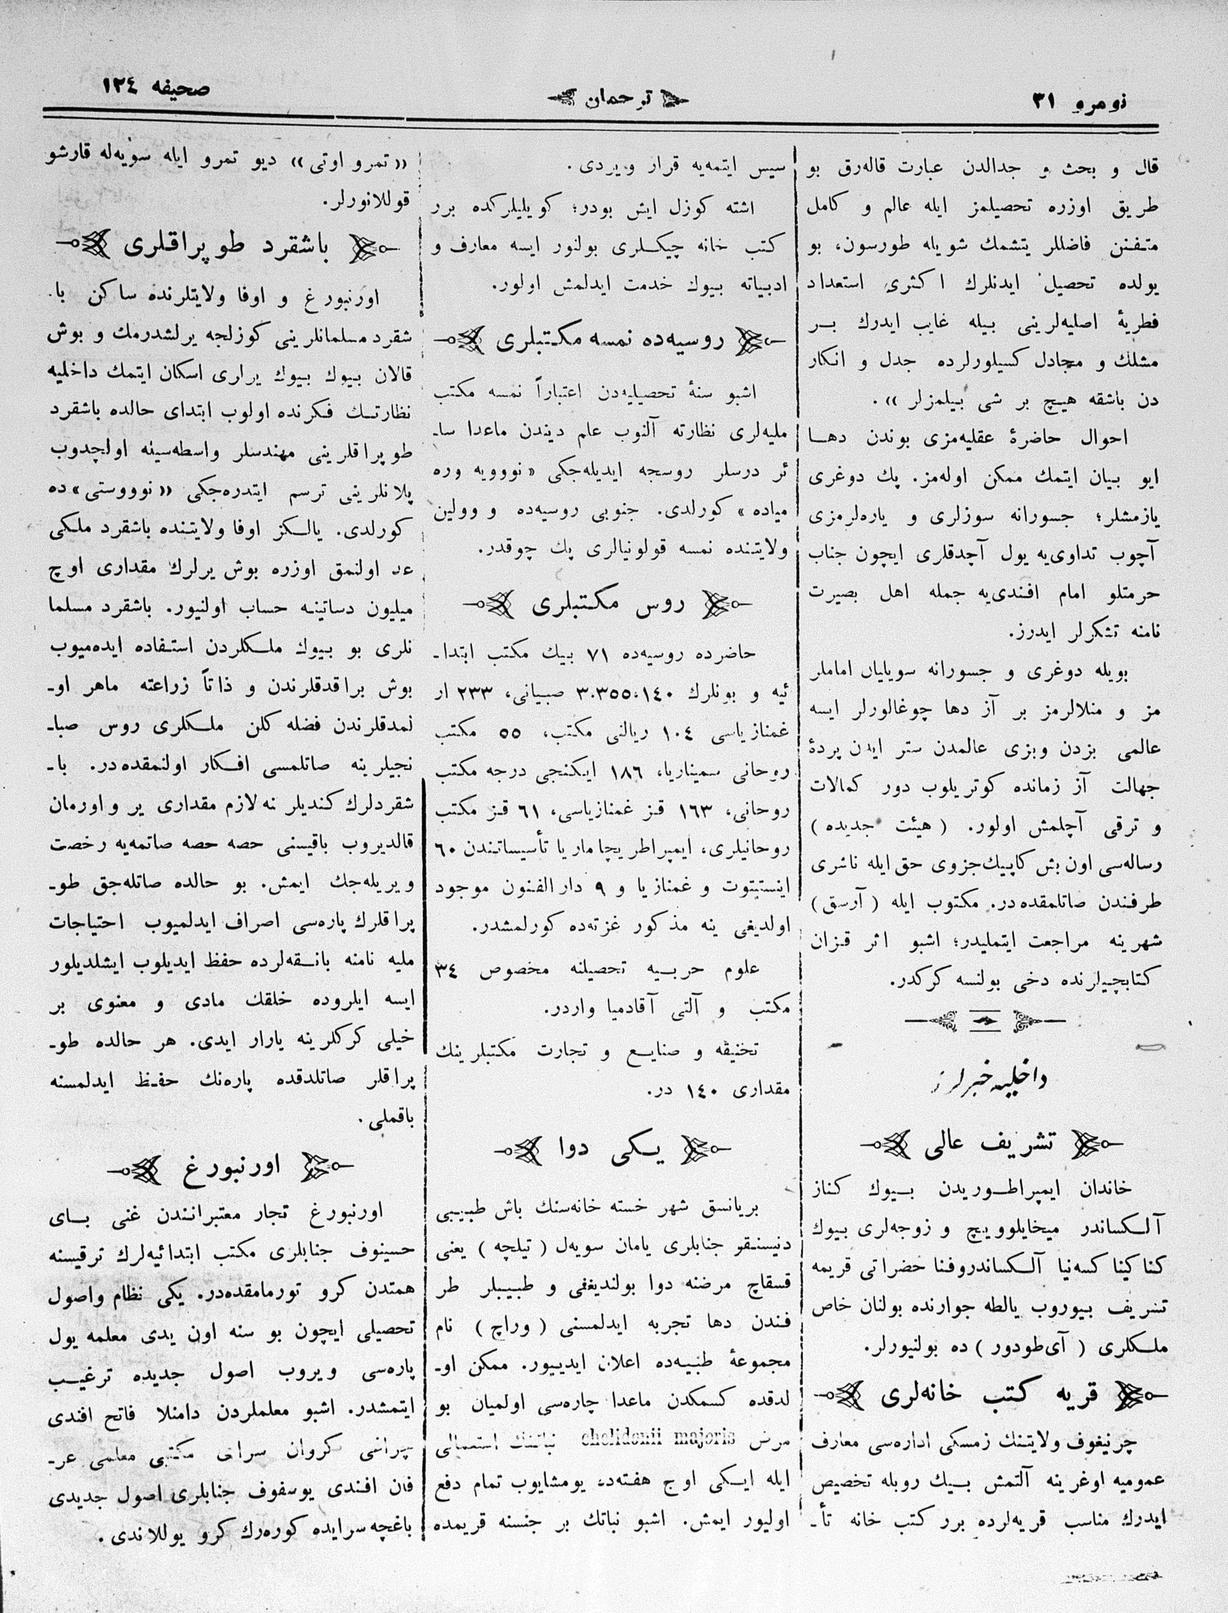 نومرو ٣١
ترجمان
صحیفه ١٢٤
قال و بحث و جدالدن عبارت قاله‌رق بو
طریق اوزره تحصیلمز ایله عالم و کامل
متفنن فاضللر یتشمك شویله طورسون، بو
یولده تحصیل ایدنلرك اکثری استعداد
فطریهٔ اصلیه‌لرینی بیله غایب ایدرك بر
مشلك و مجادل کسیلورلرده جدل و انکار
دن باشقه هیچ بر شی بیلمزلر ».
احوال حاضرهٔ عقلیه‌مزی بوندن دها
ایو بیان ایتمك ممکن اوله‌مز. پك دوغری
یازمشلر؛ جسورانه سوزلری و یاره‌لرمزی
آچوب تداوی‌یه یول آچدقلری ایچون جناب
حرمتلو امام افندی‌یه جمله اهل بصیرت
نامنه تشکرلر ایدرز.
بویله دوغری و جسورانه سویلیان اماملر
مز و منلالرمز بر آز دها چوغالورلر ایسه
عالمی بزدن وبزی عالمدن ستر ایدن پردهٔ
جهالت آز زمانده کوتریلوب دور کمالات
و ترقی آچلمش اولور. ( هیئت جدیده )
رساله‌سی اون بش کاپیك‌جزوی حق ایله ناشری
طرفندن صاتلمقده‌در. مکتوب ایله ( آرسق )
شهرینه مراجعت ایتملیدر؛ اشبو اثر قزان
کتابچیلرنده دخی بولنسه کرکدر.
داخلیه خبرلر
تشریف عالی
خاندان ایمپراطوریدن بیوك کناز
آلکساندر میخایلوویچ و زوجه‌لری بیوك
کناکینا کسه‌نیا آلکساندروفنا حضراتی قریمه
تشریف بیوروب یالطه جوارنده بولنان خاص
ملکلری ( آی‌طودور ) ده بولنیورلر.
قریه کتب خانه‌لری
چرنیغوف ولایتنك زمسکی اداره‌سی معارف
عمومیه اوغرینه آلتمش بیك روبله تخصیص
ایدرك مناسب قریه‌لرده برر کتب خانه تأ-
سیس ایتمه‌یه قرار ویردی.
اشته کوزل ایش بودر؛ کویلیلرکده برر
کتب خانه چیکلری بولنور ایسه معارف و
ادبیاته بیوك خدمت ایدلمش اولور.
روسیه‌ده نمسه مکتبلری
اشبو سنهٔ تحصیلیه‌دن اعتباراً نمسه مکتب
ملیه‌لری نظارته آلنوب علم دیندن ماعدا سا-
ئر درسلر روسجه ایدیله‌جکی « نوویه وره
میاده » کورلدی. جنوبی روسیه‌ده و وولین
ولایتنده نمسه قولونیالری پك چوقدر.
روس مکتبلری
حاضرده روسیه‌ده ٧١ بیك مکتب ابتدا-
ئیه و بونلرك ٣،٣٥٥،١٤٠ صبیانی، ٢٣٣ ار
غمنازیاسی ١٠٤ ریالنی مکتب، ٥٥ مکتب
روحانی سمیناریا، ١٨٦ ایکنجی درجه مکتب
روحانی، ١٦٣ قز غمنازیاسی، ٦١ قز مکتب
روحانیلری، ایمپراطریچا ماریا تأسیساتندن ٦٠
اینستیتوت و غمنازیا و ٩ دار الفنون موجود
اولدیغی ینه مذکور غزته‌ده کورلمشدر.
علوم حربیه تحصیلنه مخصوص ٣٤
مکتب و آلتی آقادمیا واردر.
تخنیقه و صنایع و تجارت مکتبلرینك
مقداری ١٤٠ در.
یکی دوا
بریانسق شهر خسته خانه‌سنك باش طبیبی
دنیسنقو جنابلری یامان سویه‌ل ( تیلچه ) یعنی
قسقاچ مرضنه دوا بولندیغنی و طبیبلر طر
فندن دها تجربه ایدلمسنی ( وراچ ) نام
مجموعهٔ طبیه‌ده اعلان ایدییور. ممکن او-
لدقده کسمکدن ماعدا چاره‌سی اولمیان بو
مرض chelidonii majoris نباتنك استعمالی
ایله ایکی اوچ هفته‌ده یومشایوب تمام دفع
اولیور ایمش. اشبو نباتك بر جنسنه قریمده
« تمرو اوتی » دیو تمرو ایله سویه‌له قارشو
قوللانورلر.
باشقرد طوپراقلری
اورنبورغ و اوفا ولایتلرنده ساکن با
شقرد مسلمانلرینی کوزلجه یرلشدرمك و بوش
قالان بیوك بیوك یرلری اسکان ایتمك داخلیه
نظارتنك فکرنده اولوب ابتدای حالده باشقرد
طوپراقلرینی مهندسلر واسطه‌سیله اولچدوب
پلانلرینی ترسم ایتدره‌جکی « نوووستی » ده
کورلدی. یالکز اوفا ولایتنده باشقرد ملکی
عد اولنمق اوزره بوش یرلرك مقداری اوچ
میلیون دساتینه حساب اولنیور. باشقرد مسلما
نلری بو بیوك ملکلردن استفاده ایده‌میوب
بوش براقدقلرندن و ذاتاً زراعته ماهر او-
لمدقلرندن فضله کلن ملکلری روس صبا-
نجیلرینه صاتلمسی افکار اولنمقده‌در. با-
شقردلرك کندیلرنه لازم مقداری یر و اورمان
قالدیروب باقیسنی حصه حصه صاتمه‌یه رخصت
ویریله‌جك ایمش. بو حالده صاتله‌جق طو-
پراقلرك پاره‌سی اصراف ایدلمیوب احتیاجات
ملیه نامنه بانقه‌لرده حفظ ایدیلوب ایشلدیلور
ایسه ایلروده خلقك مادی و معنوی بر
خیلی کرکلرینه یارار ایدی. هر حالده طو-
پراقلر صاتلدقده پاره‌نك حفظ ایدلمسنه
باقملی.
اورنبورغ
اورنبورغ تجار معتبرانندن غنی بای
حسینوف جنابلری مکتب ابتدائیه‌لرك ترقیسنه
همتدن کرو تورمامقده‌در. یکی نظام واصول
تحصیلی ایچون بو سنه اون یدی معلمه یول
پاره‌سی ویروب اصول جدیده ترغیب
ایتمشدر. اشبو معلملردن داملا فاتح افندی
کروان سرای مکتبی معلمی عر-
فان افندی یوسفوف جنابلری اصول جدیدی
باغچه‌سرایده کوره‌رك کرو یوللاندی.